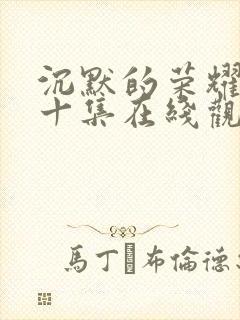 沉默的荣耀
十集在綫觀
馬丁 布倫德